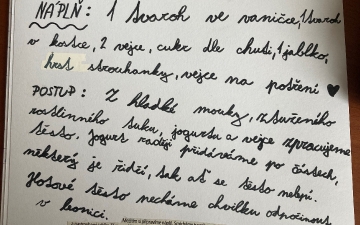 NÁPLŇ: 1 tvaroh ve vaničce, 1 tvaroh
v kostce, 2 vejce, cukr dle chuti, 1 jablko,
hrst strouhanky, vejce na potření ♥
POSTUP: Z hladké mouky, ztuženého
rostlinného tuku, jogurtu a vejce zpracujeme
těsto, jogurt raději přidáváme po částech,
některý je řidší, tak ať se těsto nelepí.
Hotové těsto necháme chvilku odpočinout
v lednici.